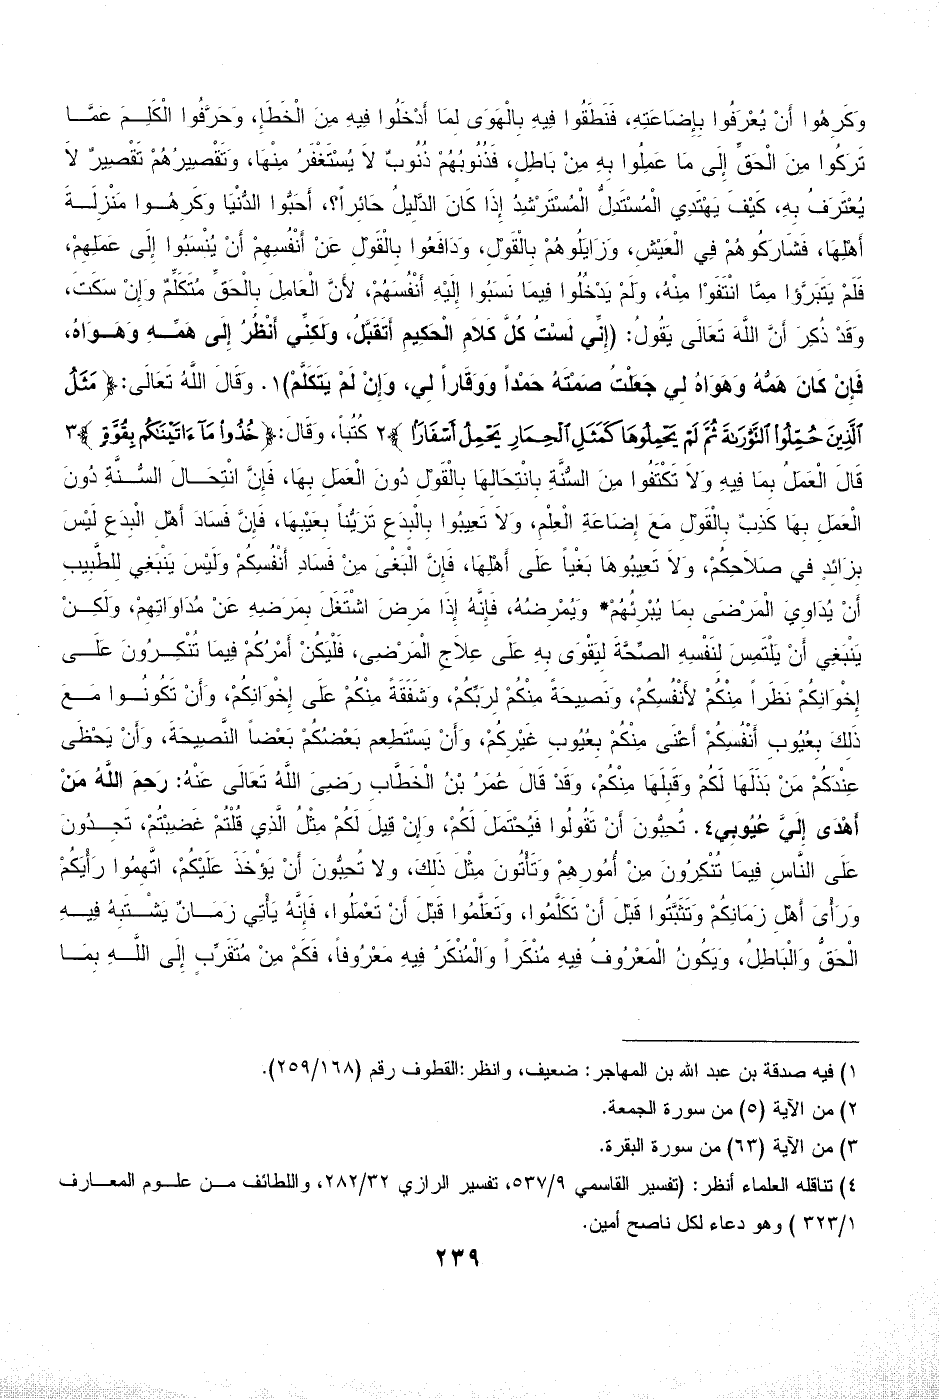 وَكَرِهُوا أَنْ يُعْرَفُوا بِإِضَاعَتِهِ، فَنَطَقُوا فِيهِ بِالْهَوَى لِمَا أَدْخَلُوا فِيهِ مِنَ الْخَطَإِ، وَحَرَّفُوا الْكَلِمَ عَمَّا
تَرَكُوا مِنَ الْحَقِّ إِلَى مَا عَمِلُوا بِهِ مِنْ بَاطِلٍ، فَذُنُوبُهُمْ ذُنُوبٌ لاَ يُسْتَغْفَرُ مِنْهَا، وَتَقْصِيرُهُمْ تَقْصِيرٌ لاَ
يُعْتَرَفُ بِهِ، كَيْفَ يَهْتَدِي الْمُسْتَدِلُّ الْمُسْتَرْشِدُ إِذَا كَانَ الدَّلِيلُ حَائِراً؟، أَحَبُّوا الدُّنْيَا وَكَرِهُوا مَنْزِلَةَ
أَهْلِهَا، فَشَارَكُوهُمْ فِي الْعَيْشِ، وَزَايَلُوهُمْ بِالْقَوْلِ، وَدَافَعُوا بِالْقَوْلِ عَنْ أَنْفُسِهِمْ أَنْ يُنْسَبُوا إِلَى عَمَلِهِمْ،
فَلَمْ يَتَبَرَّؤا مِمَّا انْتَفَوْا مِنْهُ، وَلَمْ يَدْخُلُوا فِيمَا نَسَبُوا إِلَيْهِ أَنْفُسَهُمْ، لأَنَّ الْعَامِلَ بِالْحَقِّ مُتَكَلِّمٌ وَإِنْ سَكَتَ،
وَقَدْ ذُكِرَ أَنَّ اللَّهَ تَعَالَى يَقُولُ: (إِنِّي لَسْتُ كُلَّ كَلاَمِ الْحَكِيمِ أَتَقَبَّلُ، وَلَكِنِّي أَنْظُرُ إِلَى هَمِّهِ وَهَوَاهُ،
فَإِنْ كَانَ هَمُّهُ وَهَوَاهُ لِي جَعَلْتُ صَمْتَهُ حَمْداً وَوَقَاراً لِي، وَإِنْ لَمْ يَتَكَلَّمْ)١. وَقَالَ اللَّهُ تَعَالَى: ﴿ مَثَلُ
الَّذِينَ حُمِّلُوا التَّوْرَىٰةَ ثُمَّ لَمْ يَحْمِلُوهَا كَمَثَلِ الْحِمَارِ يَحْمِلُ أَسْفَارًا ﴾٢ كُتُباً، وَقَالَ: ﴿ خُذُوا مَآ ءَاتَيْنَٰكُم بِقُوَّةٍ ﴾٣
قَالَ الْعَمَلُ بِمَا فِيهِ وَلاَ تَكْتَفُوا مِنَ السُّنَّةِ بِانْتِحَالِهَا بِالْقَوْلِ دُونَ الْعَمَلِ بِهَا، فَإِنَّ انْتِحَالَ السُّنَّةِ دُونَ
الْعَمَلِ بِهَا كَذِبٌ بِالْقَوْلِ مَعَ إِضَاعَةِ الْعِلْمِ، وَلاَ تَعِيبُوا بِالْبِدَعِ تَزَيُّناً بِعَيْبِهَا، فَإِنَّ فَسَادَ أَهْلِ الْبِدَعِ لَيْسَ
بِزَائِدٍ فِي صَلاَحِكُمْ، وَلاَ تَعِيبُوهَا بَغْياً عَلَى أَهْلِهَا، فَإِنَّ الْبَغْىَ مِنْ فَسَادِ أَنْفُسِكُمْ وَلَيْسَ يَنْبَغِي لِلطَّبِيبِ
أَنْ يُدَاوِيَ الْمَرْضَى بِمَا يُبْرِئُهُمْ* وَيُمْرِضُهُ، فَإِنَّهُ إِذَا مَرِضَ اشْتَغَلَ بِمَرَضِهِ عَنْ مُدَاوَاتِهِمْ، وَلَكِنْ
يَنْبَغِي أَنْ يَلْتَمِسَ لِنَفْسِهِ الصِّحَّةَ لِيَقْوَى بِهِ عَلَى عِلاَجِ الْمَرْضَى، فَلْيَكُنْ أَمْرُكُمْ فِيمَا تُنْكِرُونَ عَلَى
إِخْوَانِكُمْ نَظَراً مِنْكُمْ لأَنْفُسِكُمْ، وَنَصِيحَةً مِنْكُمْ لِرَبِّكُمْ، وَشَفَقَةً مِنْكُمْ عَلَى إِخْوَانِكُمْ، وَأَنْ تَكُونُوا مَعَ
ذَلِكَ بِعُيُوبِ أَنْفُسِكُمْ أَعْنَى مِنْكُمْ بِعُيُوبِ غَيْرِكُمْ، وَأَنْ يَسْتَطْعِمَ بَعْضُكُمْ بَعْضاً النَّصِيحَةَ، وَأَنْ يَحْظَى
عِنْدَكُمْ مَنْ بَذَلَهَا لَكُمْ وَقَبِلَهَا مِنْكُمْ، وَقَدْ قَالَ عُمَرُ بْنُ الْخَطَّابِ رَضِيَ اللَّهُ تَعَالَى عَنْهُ: رَحِمَ اللَّهُ مَنْ
أَهْدَى إِلَيَّ عُيُوبِي٤. تُحِبُّونَ أَنْ تَقُولُوا فَيُحْتَمَلَ لَكُمْ، وَإِنْ قِيلَ لَكُمْ مِثْلُ الَّذِي قُلْتُمْ غَضِبْتُمْ، تَجِدُونَ
عَلَى النَّاسِ فِيمَا تُنْكِرُونَ مِنْ أُمُورِهِمْ وَتَأْتُونَ مِثْلَ ذَلِكَ، وَلا تُحِبُّونَ أَنْ يَؤْخَذَ عَلَيْكُمْ، اتَّهِمُوا رَأْيَكُمْ
وَرَأْىَ أَهْلِ زَمَانِكُمْ وَتَثَبَّتُوا قَبْلَ أَنْ تَكَلَّمُوا، وَتَعَلَّمُوا قَبْلَ أَنْ تَعْمَلُوا، فَإِنَّهُ يَأْتِي زَمَانٌ يَشْتَبِهُ فِيهِ
الْحَقُّ وَالْبَاطِلُ، وَيَكُونُ الْمَعْرُوفُ فِيهِ مُنْكَراً وَالْمُنْكَرُ فِيهِ مَعْرُوفاً، فَكَمْ مِنْ مُتَقَرِّبٍ إِلَى اللَّهِ بِمَا
١) فيه صدقة بن عبد الله بن المهاجر: ضعيف، وانظر: القطوف رقم (٢٥٩/١٦٨).
٢) من الآية (٥) من سورة الجمعة.
٣) من الآية (٦٣) من سورة البقرة.
٤) تناقله العلماء أنظر: (تفسير القاسمي ٥٣٧/٩، تفسير الرازي ٢٨٢/٣٢، واللطائف من علوم المعارف
٣٢٣/١ ) وهو دعاء لكل ناصح أمين.
٢٣٩